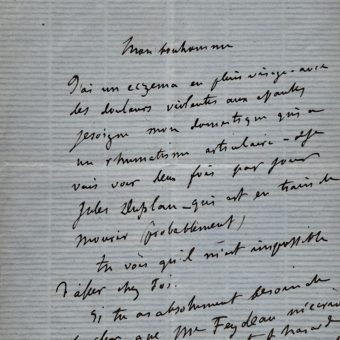 Mon bonhomme
J'ai un eczema en plein visage - avec
des douleurs violentes aux
je soigne mon domestique qui a
un rhumatisme articulaire - & je
vais voir deux fois par jour
Jules Duplan - qui est en train de
mourir (probablement)
tu vois qu'il m'est impossible
d'aller chez toi.
Si tu as absolument besoin de
que Mr Feydeau